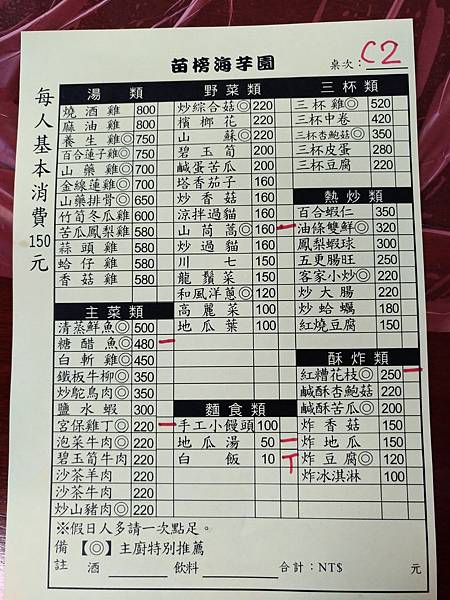 苗榜海芋園
桌次：C2
每人基本消費150元
湯類
燒酒雞 800
麻油雞 800
養生雞◎ 750
百合蓮子雞◎ 750
山藥雞◎ 700
金線蓮雞◎ 700
山藥排骨◎ 650
竹筍冬瓜雞 600
苦瓜鳳梨雞 580
蒜頭雞 580
蛤仔雞 580
香菇雞 580
主菜類
清蒸鮮魚◎ 500
糖醋魚◎ 480 一
白斬雞◎ 450
鐵板牛柳◎ 350
炒鴕鳥肉◎ 350
鹽水蝦 300
宮保雞丁◎ 220 一
泡菜牛肉◎ 220
碧玉筍牛肉 220
沙茶羊肉 220
沙茶牛肉 220
炒山豬肉◎ 220
野菜類
炒綜合菇◎ 220
檳榔花 220
山蘇◎ 220
碧玉筍 200
鹹蛋苦瓜 200
塔香茄子 160
炒香菇 160
涼拌過貓 160
山茼蒿◎ 160 一
炒過貓 160
川七 150
龍鬚菜 150
和風洋蔥◎ 120
高麗菜 100
地瓜葉 100
麵食類
手工小饅頭 100
地瓜湯 50 一
白飯 10 T
三杯類
三杯雞◎ 520
三杯中卷 420
三杯杏鮑菇◎ 350
三杯皮蛋 280
三杯豆腐 220
熱炒類
百合蝦仁 350
油條雙鮮◎ 320
鳳梨蝦球 300
五更腸旺 250
客家小炒◎ 220
炒大腸 220
炒蛤蠣 180
紅燒豆腐 150
酥炸類
紅糟花枝◎ 250 一
鹹酥杏鮑菇 220
鹹酥苦瓜◎ 200
炸香菇 150
炸地瓜 150
炸豆腐◎ 120
炸冰淇淋 100
※假日人多請一次點足。
備註【◎】主廚特別推薦
酒 飲料 合計：NT$ 元